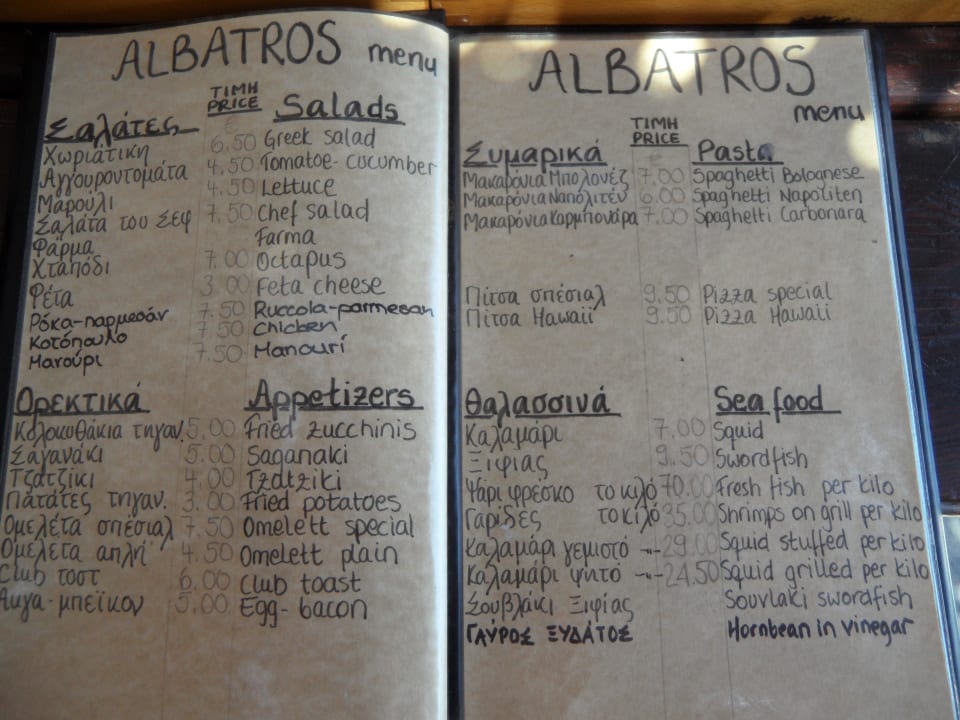 ALBATROS menu
ΤΙΜΗ
PRICE
Σαλάτες Salads
€
Χωριάτικη 6.50 Greek salad
Αγγουροντομάτα 4.50 Tomatoe-cucumber
Μαρούλι 4.50 Lettuce
Σαλάτα του Σεφ 7.50 Chef salad
Φάρμα Farma
Χταπόδι 7.00 Octapus
Φέτα 3.00 Feta cheese
Ρόκα-παρμεσάν 7.50 Ruccola-parmesan
Κοτόπουλο 7.50 Chicken
Μανούρι 7.50 Manourí
Ορεκτικά Appetizers
Κολοκυθάκια τηγαν. 5.00 Fried zucchinis
Σαγανάκι 5.00 Saganaki
Τζατζίκι 4.00 Tzatziki
Πατάτες τηγαν. 3.00 Fried potatoes
Ομελέτα σπέσιαλ 7.50 Omelett special
Ομελέτα απλή 4.50 Omelett plain
Club τοστ 6.00 Club toast
Αυγα-μπέϊκον 5.00 Egg-bacon
ALBATROS
menu
ΤΙΜΗ
PRICE
Ζυμαρικά € Pasta
Μακαρόνια Μπολονέζ 7.00 Spaghetti Bolognese
Μακαρόνια Ναπολιτέν 6.00 Spaghetti Napoliten
Μακαρόνια Καρμπονάρα 7.00 Spaghetti Carbonara
Πίτσα σπέσιαλ 9.50 Pizza special
Πίτσα Hawaii 9.50 Pizza Hawaii
Θαλασσινά Sea food
Καλαμάρι 7.00 Squid
Ξιφίας 9.50 Swordfish
Ψάρι φρέσκο το κιλό 70.00 Fresh fish per kilo
Γαρίδες το κιλό 35.00 Shrimps on grill per kilo
Καλαμάρι γεμιστό -"- 29.00 Squid stuffed per kilo
Καλαμάρι ψητό -"- 24.50 Squid grilled per kilo
Σουβλάκι Ξιφίας Souvlaki swordfish
ΓΑΥΡΟΣ ΞΥΔΑΤΟΣ Hornbean in vinegar